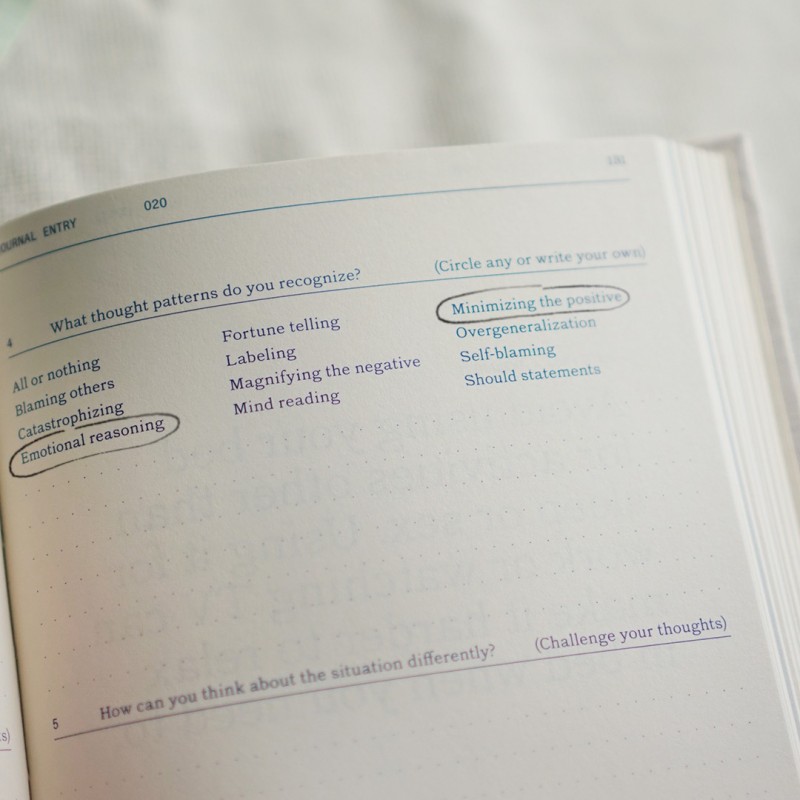 JOURNAL ENTRY 020 131
4 What thought patterns do you recognize? (Circle any or write your own)
All or nothing
Blaming others
Catastrophizing
Emotional reasoning
Fortune telling
Labeling
Magnifying the negative
Mind reading
Minimizing the positive
Overgeneralization
Self-blaming
Should statements
5 How can you think about the situation differently? (Challenge your thoughts)